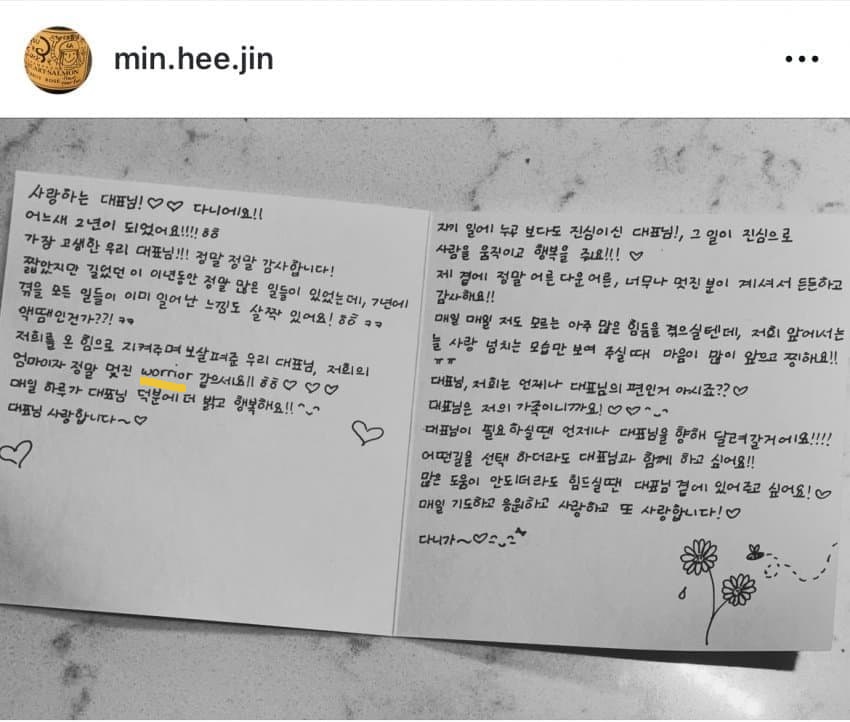 min.hee.jin
사랑하는 대표님!♡♡ 다니에요!!
어느새 2년이 되었어요!!!! ㅎㅎ
가장 고생한 우리 대표님!!! 정말 정말 감사합니다!
짧았지만 길었던 이 이년동안 정말 많은 일들이 있었는데, 7년에
겪을 모든 일들이 이미 일어난 느낌도 살짝 있어요! ㅎㅎ ㅋㅋ
액땜인건가??! ㅋㅋ
저희를 온 힘으로 지켜주며 보살펴준 우리 대표님, 저희의
엄마이자 정말 멋진 worrior 같으세요!! ㅎㅎ♡ ♡ ♡
매일 하루가 대표님 덕분에 더 밝고 행복해요!! ^_^
대표님 사랑합니다~♡
자기 일에 누구 보다도 진심이신 대표님!, 그 일이 진심으로
사람을 움직이고 행복을 줘요!!! ♡
제 곁에 정말 어른 다운 어른, 너무나 멋진 분이 계셔서 든든하고
감사해요!!
매일 매일 저도 모르는 아주 많은 힘듦을 겪으실텐데, 저희 앞에서는
늘 사랑 넘치는 모습만 보여 주실때 마음이 많이 아프고 찡해요!!
ㅠㅠ
대표님, 저희는 언제나 대표님의 편인거 아시죠?? ♡
대표님은 저의 가족이니까요! ♡♡ ^_^
대표님이 필요하실땐 언제나 대표님을 향해 달려갈거에요!!!!
어떤길을 선택 하더라도 대표님과 함께 하고 싶어요!!
많은 도움이 안되더라도 힘드실땐 대표님 곁에 있어주고 싶어요! ♡
매일 기도하고 응원하고 사랑하고 또 사랑합니다! ♡
다니가~♡